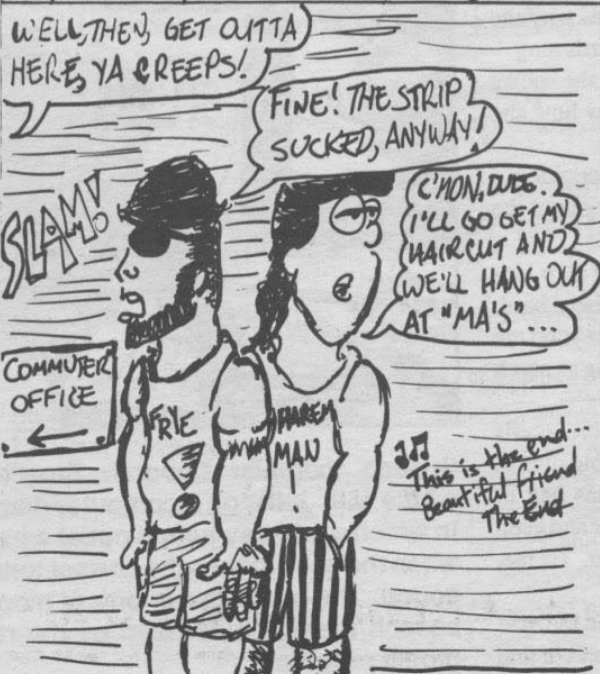 WELL, THEN, GET OUTTA
HERE, YA CREEPS!
FINE! THE STRIP
SUCKED, ANYWAY!
C'MON, DUDE.
I'LL GO GET MY
HAIRCUT AND
WE'LL HANG OUT
AT "MA'S"...
SLAM!
COMMUTER
OFFICE
FRYE
HAREM
MAN
!
This is the end...
Beautiful friend
The End